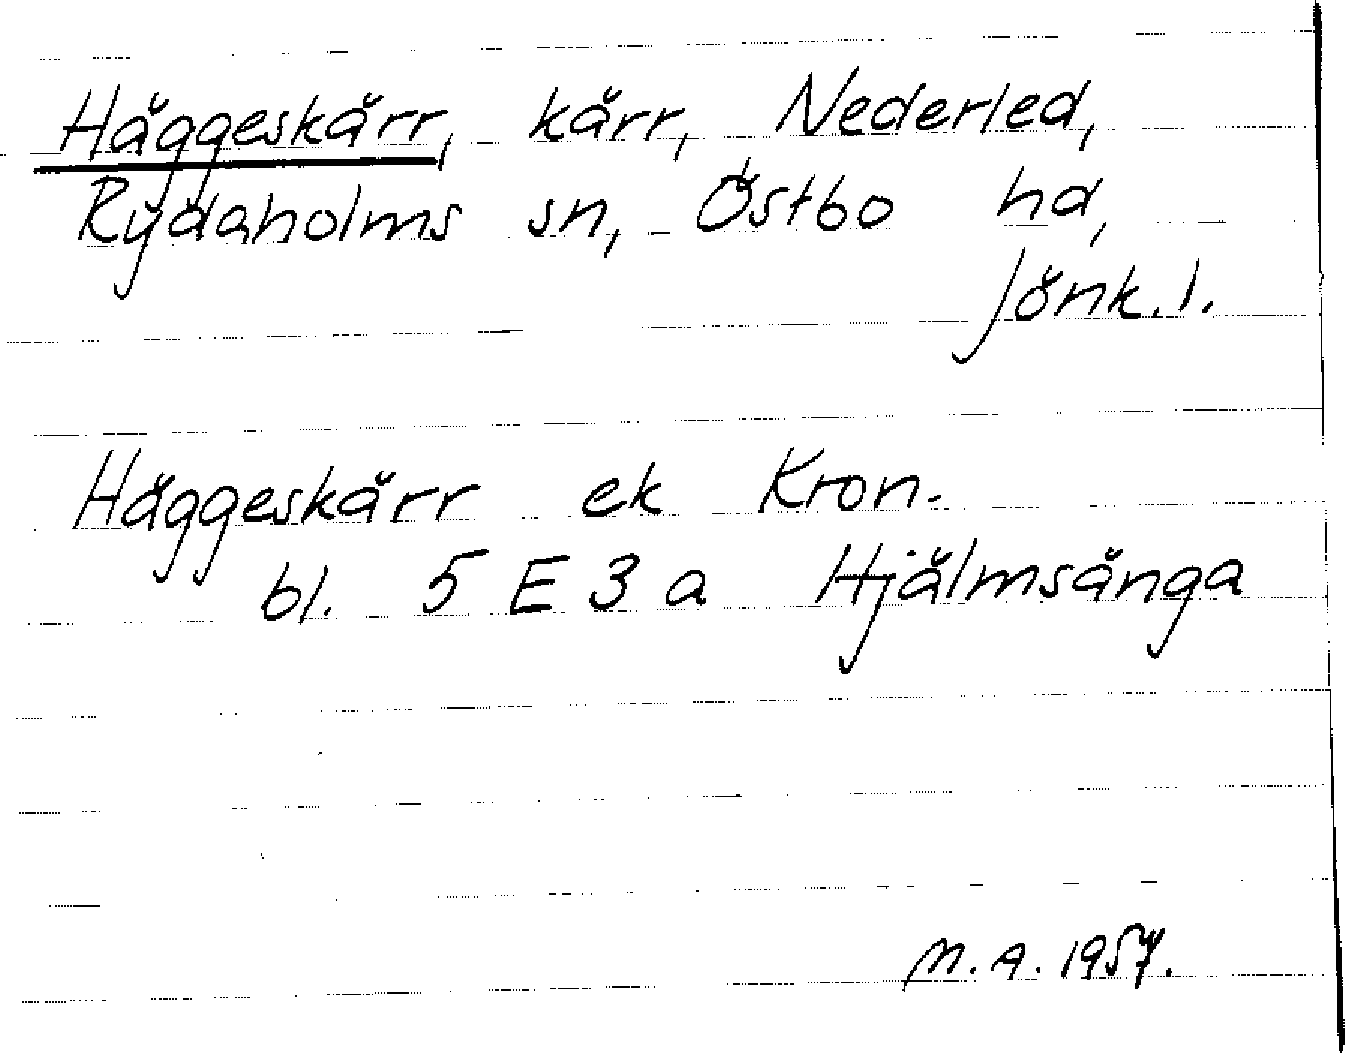 Häggeskärr, kärr, Nederled,
Rydaholms sn, Östbo hd,
Jönk.l.
Häggeskärr ek Kron.
bl. 5 E 3 a Hjälmsänga
M.A. 1957.